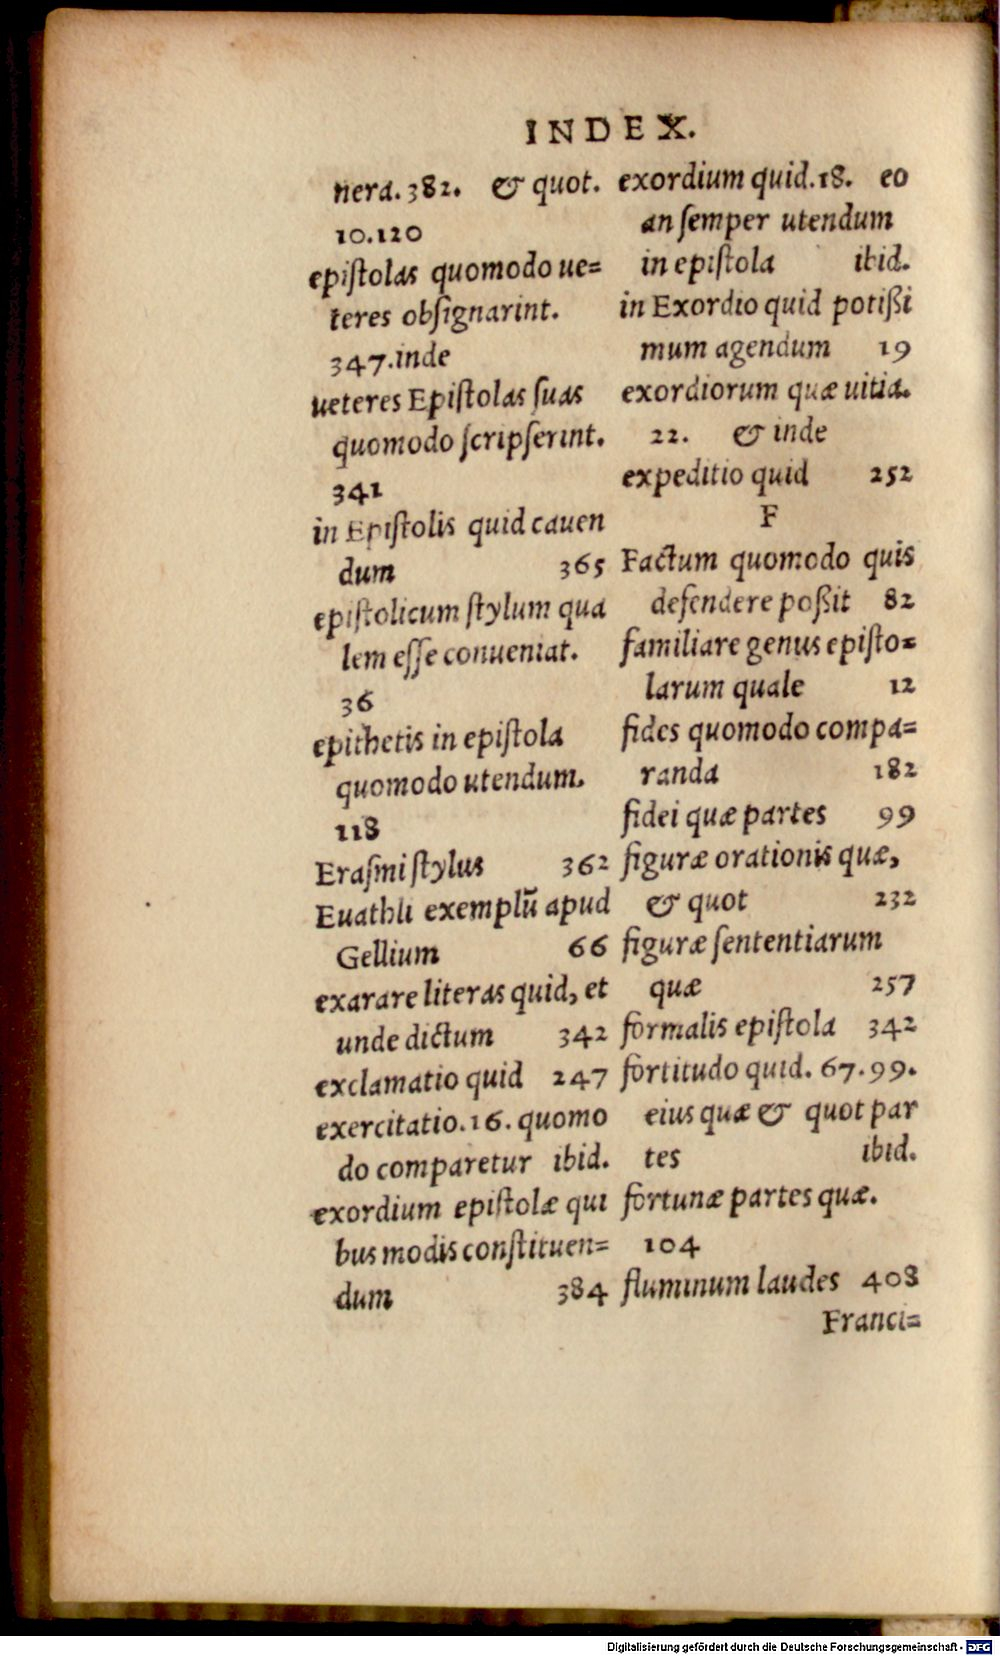 INDEX.
nera.382. & quot.
10.120
epiſtolas quomodo ue=
teres obſignarint.
347.inde
ueteres Epiſtolas ſuas
quomodo ſcripſerint.
341
in Epiſtolis quid cauen
dum 365
epiſtolicum ſtylum qua
lem eſſe conueniat.
36
epithetis in epiſtola
quomodo utendum.
118
Eraſmi ſtylus 362
Euathli exemplū apud
Gellium 66
exarare literas quid, et
unde dictum 342
exclamatio quid 247
exercitatio.16. quomo
do comparetur ibid.
exordium epiſtolæ qui
bus modis conſtituen=
dum 384
exordium quid.18. eo
an ſemper utendum
in epiſtola ibid.
in Exordio quid potißi
mum agendum 19
exordiorum quæ uitia.
22. & inde
expeditio quid 252
F
Factum quomodo quis
defendere poßit 82
familiare genus epiſto=
larum quale 12
fides quomodo compa=
randa 182
fidei quæ partes 99
figuræ orationis quæ,
& quot 232
figuræ ſententiarum
quæ 257
formalis epiſtola 342
fortitudo quid. 67.99.
eius quæ & quot par
tes ibid.
fortunæ partes quæ.
104
fluminum laudes 408
Franci=
Digitalisierung gefördert durch die Deutsche Forschungsgemeinschaft - DFG